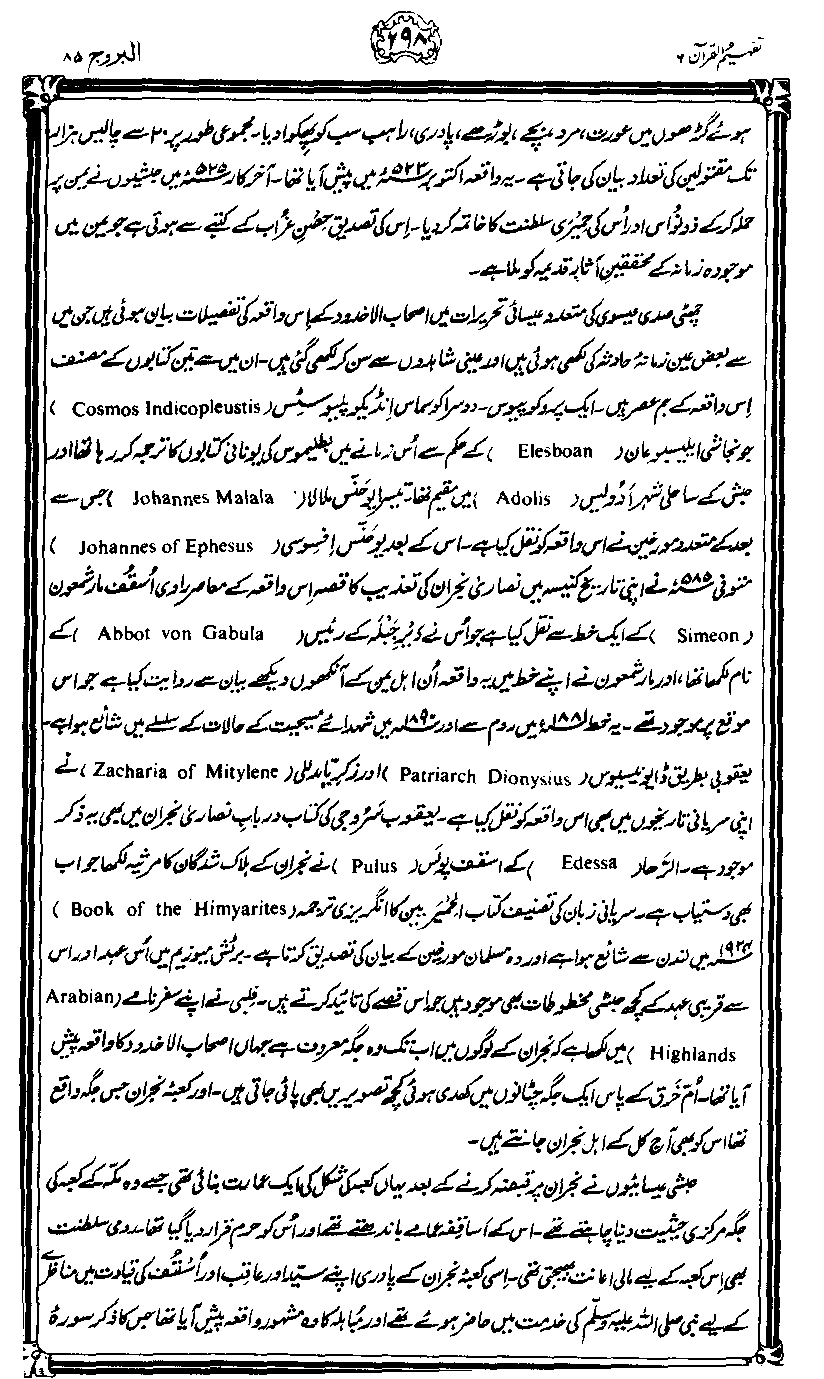 تفہیم القرآن ۶
۲۹۸
البروج ۸۵
ہوئے گڑھوں میں عورت، مرد، بچے، بوڑھے، پادری، راہب سب کو پھکوا دیا۔ مجموعی طور پر ۲۰ سے چالیس ہزار
تک مقتولین کی تعداد بیان کی جاتی ہے۔ یہ واقعہ اکتوبر ۵۲۳ء میں پیش آیا تھا۔ آخر کار ۵۲۵ء میں حبشیوں نے یمن پر
حملہ کر کے ذونواس اور اُس کی حِمیَری سلطنت کا خاتمہ کر دیا۔ اِس کی تصدیق حِصنِ غُراب کے کتبے سے ہوتی ہے جو یمن میں
موجودہ زمانہ کے محققینِ آثارِ قدیمہ کو ملا ہے۔
چھٹی صدی عیسوی کی متعدد عیسائی تحریرات میں اصحاب الاخدود کے اِس واقعہ کی تفصیلات بیان ہوئی ہیں جن میں
سے بعض عین زمانۂ حادثہ کی لکھی ہوئی ہیں اور عینی شاہدوں سے سن کر لکھی گئی ہیں۔ ان میں سے تین کتابوں کے مصنف
اِس واقعہ کے ہم عصر ہیں۔ ایک پروکوپیوس۔ دوسرا کوسماس اِنڈیکوپلیوسٹِس (Cosmos Indicopleustis)
جو نجاشی ایلیسبوعان (Elesboan) کے حکم سے اُس زمانے میں بطلیموس کی یونانی کتابوں کا ترجمہ کر رہا تھا اور
حبش کے ساحلی شہر اَدُولیس (Adolis) میں مقیم تھا۔ تیسرا یوحَنّس ملالا (Johannes Malala) جس سے
بعد کے متعدد مورخین نے اس واقعہ کو نقل کیا ہے۔ اس کے بعد یوحَنّس اِفسوسی (Johannes of Ephesus)
متوفی ۵۸۵ء نے اپنی تاریخ کنیسہ میں نصاریٰ نجران کی تعذیب کا قصہ اِس واقعہ کے معاصر راوی اُسقُف مارشمعون
(Simeon) کے ایک خط سے نقل کیا ہے جو اُس نے دَیرِ جَبلہ کے رئیس (Abbot von Gabula) کے
نام لکھا تھا، اور مارشمعون نے اپنے خط میں یہ واقعہ اُن اہلِ یمن کے آنکھوں دیکھے بیان سے روایت کیا ہے جو اس
موقع پر موجود تھے۔ یہ خط ۱۸۸۱ء میں روم سے اور ۱۸۹۰ء میں شہدائے مسیحیت کے حالات کے سلسلے میں شائع ہوا ہے۔
یعقوبی بطریق ڈایونیسیوس (Patriarch Dionysius) اور زکریا مدللی (Zacharia of Mitylene) نے
اپنی سریانی تاریخوں میں بھی اس واقعہ کو نقل کیا ہے۔ یعقوب سَرُوجی کی کتاب دربابِ نصاریٰ نجران میں بھی یہ ذکر
موجود ہے۔ الرَّھا (Edessa) کے اسقف پولس (Pulus) نے نجران کے ہلاک شدگان کا مرثیہ لکھا جو اب
بھی دستیاب ہے۔ سریانی زبان کی تصنیف کتاب الحِمیَریین کا انگریزی ترجمہ (Book of the Himyarites)
۱۹۲۴ء میں لندن سے شائع ہوا ہے اور وہ مسلمان مورخین کے بیان کی تصدیق کرتا ہے۔ برٹش میوزیم میں اُس عہد اور اس
سے قریبی عہد کے کچھ حبشی مخطوطات بھی موجود ہیں جو اس قصے کی تائید کرتے ہیں۔ فلبی نے اپنے سفرنامے (Arabian
Highlands) میں لکھا ہے کہ نجران کے لوگوں میں اب تک وہ جگہ معروف ہے جہاں اصحاب الاخدود کا واقعہ پیش
آیا تھا۔ اُم خَرَق کے پاس ایک جگہ چٹانوں میں کھدی ہوئی کچھ تصویریں بھی پائی جاتی ہیں۔ اور کعبۂ نجران جس جگہ واقع
تھا اس کو بھی آج کل کے اہل نجران جانتے ہیں۔
حبشی عیسائیوں نے نجران پر قبضہ کرنے کے بعد یہاں کعبہ کی شکل کی ایک عمارت بنائی تھی جسے وہ مکہ کے کعبہ کی
جگہ مرکزی حیثیت دینا چاہتے تھے۔ اس کے اساقفہ عمامے باندھتے تھے اور اُس کو حرم قرار دیا گیا تھا۔ رومی سلطنت
بھی اِس کعبہ کے لیے مالی اعانت بھیجتی تھی۔ اِسی کعبۂ نجران کے پادری اپنے سید اور عاقب اور اُسقُف کی قیادت میں مناظرے
کے لیے نبی صلی اللہ علیہ وسلّم کی خدمت میں حاضر ہوئے تھے اور مُباہلہ کا وہ مشہور واقعہ پیش آیا تھا جس کا ذکر سورۂ